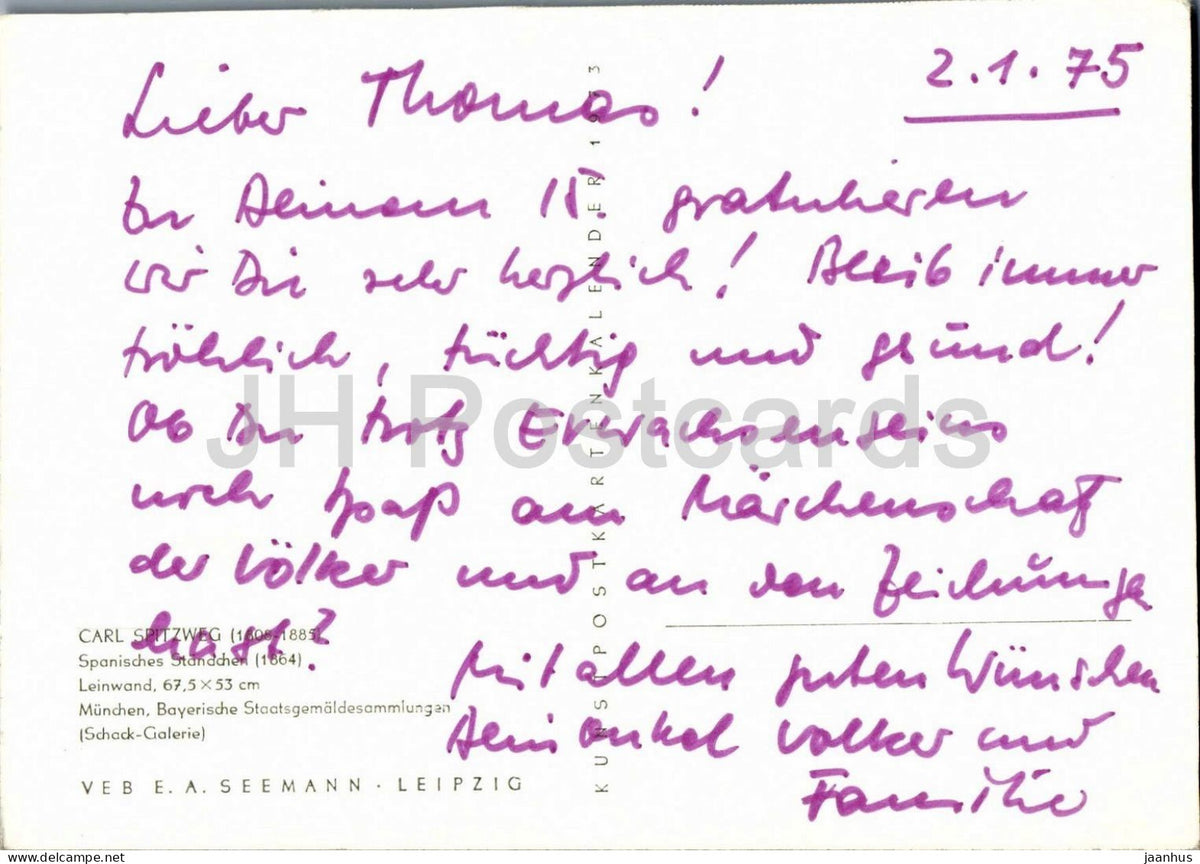 2.1.75
Lieber Thomas!
Zu Deinem 15. gratulieren
wir Dir sehr herzlich! Bleib immer
fröhlich, tüchtig und gesund!
Ob Du trotz Erwachsenseins
noch Spaß am Märchenschatz
der Völker und an den Zeichnungen
hast?
Mit allen guten Wünschen
Dein Onkel Volker und
Familie
CARL SPITZWEG (1808-1885)
Spanisches Ständchen (1864)
Leinwand, 67,5×53 cm
München, Bayerische Staatsgemäldesammlungen
(Schack-Galerie)
VEB E. A. SEEMANN · LEIPZIG
KUNSTPOSTKARTENKALENDER 1973
JH Postcards
www.delcampe.net
jaanhus